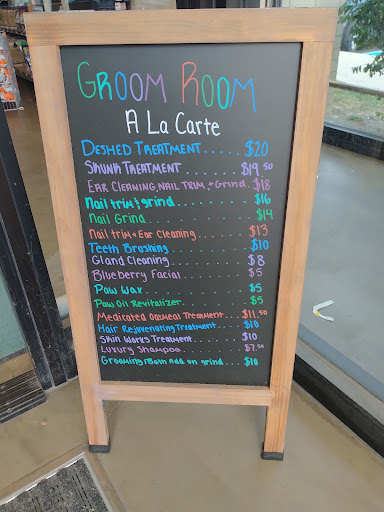 GROOM ROOM
A La Carte
DESHED TREATMENT..... $20
SKUNK TREATMENT....... $19.50
EAR CLEANING, NAIL TRIM, + Grind. $18
Nail trim & grind........... $16
Nail Grind................ $14
Nail trim + Ear Cleaning....... $13
Teeth Brushing........... $10
Gland Cleaning........... $8
Blueberry Facial......... $5
Paw Wax................ $5
Paw Oil Revitalizer......... $5
Medicated Oatmeal Treatment... $11.50
Hair Rejuvenating Treatment... $10
Skin Works Treatment....... $10
Luxury Shampoo......... $7.50
Grooming/Bath Add on grind... $10